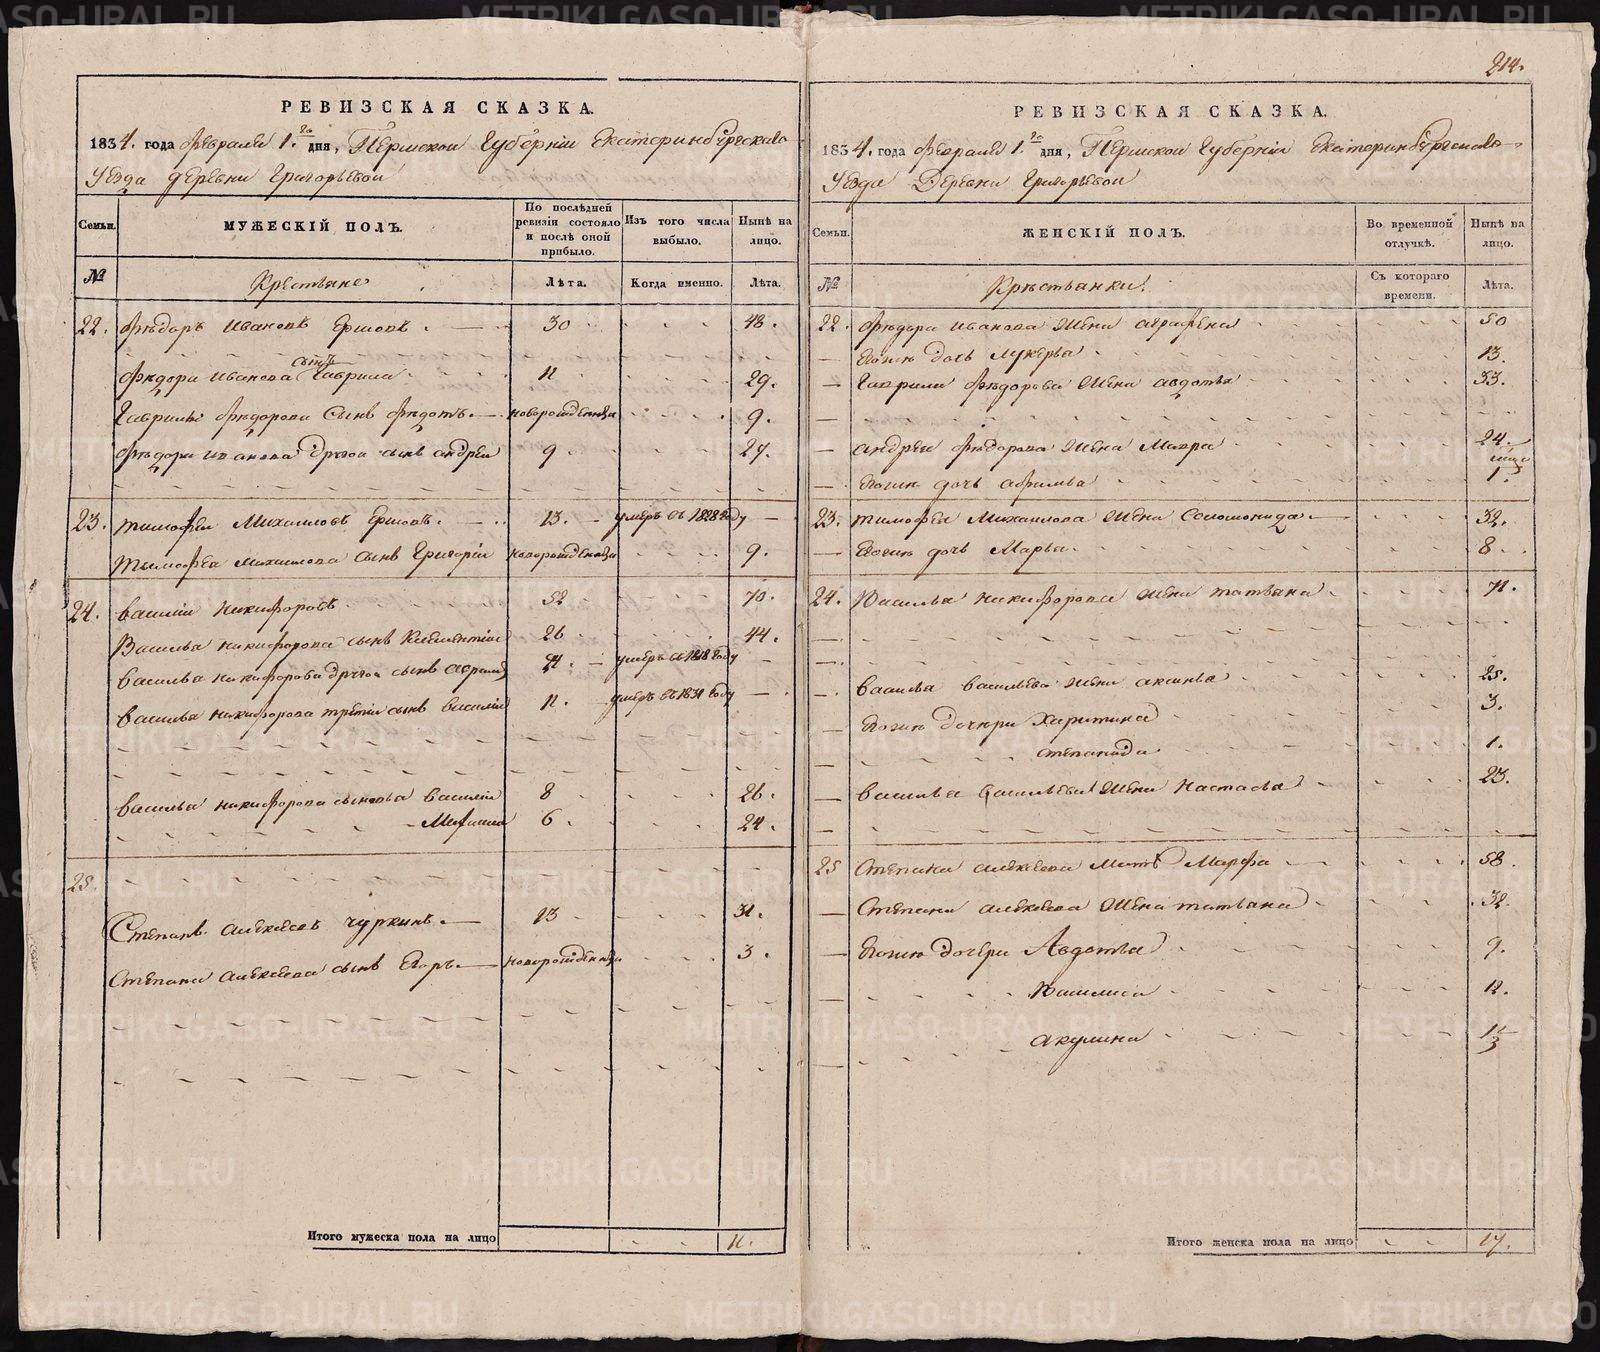 214.
РЕВИЗСКАЯ СКАЗКА.
1834. года февраля 1.го дня, Пермской Губерніи Екатеринбургскаго
Уезда деревни Григорьевой
Семьи. МУЖЕСКІЙ ПОЛЪ. По послѣдней ревизіи состояло и послѣ оной прибыло. Изъ того числа выбыло. Нынѣ на лицо.
№ Крестьяне Лѣта. Когда именно. Лѣта.
22. Фѣдоръ Ивановъ Ершовъ. 30 48.
Фѣдора Иванова сынъ Гаврила 11 29.
Гаврилы Фѣдорова сынъ Фѣдотъ. новорожденный 9.
Фѣдора Иванова другой сынъ андрей 9 27.
23. Тимофей Михаиловъ Ершовъ. 13. умеръ въ 1828 году
Тимофея Михаилова сынъ Григорій новорожденный 9.
24. Василій Никифоровъ 52 70.
Василья Никифорова сынъ Климентій 26 44.
Василья Никифорова другой сынъ Абрамъ 24. умеръ въ 1818 году
Василья Никифорова третій сынъ Василій 11. умеръ въ 1831 году
Василья Никифорова сыновья Василій 8 26.
6. 24.
25.
Степанъ Алексѣевъ Чуркинъ. 13 31.
Степана Алексѣева сынъ Егоръ. новорожденный 3.
Итого мужеска пола на лицо 11.
РЕВИЗСКАЯ СКАЗКА.
1834. года февраля 1.го дня, Пермской Губерніи Екатеринбургскаго
Уезда Деревни Григорьевой
Семьи. ЖЕНСКІЙ ПОЛЪ. Во временной отлучкѣ. Нынѣ на лицо.
№ Крестьянки. Съ котораго времени. Лѣта.
22. Фѣдора Иванова жена аграфена 50
Єгоже дочь лукерья 13.
Гаврилы Фѣдорова жена авдотья 33.
андрея Фѣдорова жена Мавра 24.
Єгоже дочь 1.
23. Тимофея Михаилова жена Соломонида 32.
Єгоже дочь Марья. 8.
24. Василья Никифорова жена татьяна 71.
Василья Васильева жена аксинья 25.
Єгоже дочери Харитина 3.
степанида 1.
Василья Васильева жена Настасья 23.
25 Степана алексѣева мать Марфа 58.
Степана алексѣева жена татьяна 32.
Єгоже дочери Авдотья 9.
Василиса 12.
акулина
Итого женска пола на лицо 17.
METRIKI.GASO-URAL.RU